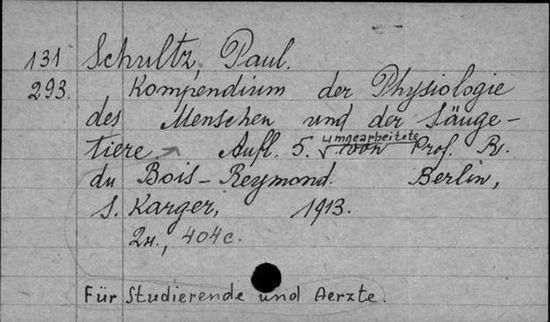 131 Schultz, Paul.
293. Kompendium der Physiologie
des Menschen und der Säuge-
tiere Aufl. 5. umgearbeitete von Prof. R.
du Bois-Reymond. Berlin,
S. Karger, 1913.
2н., 404с.
Für Studierende und Aerzte.